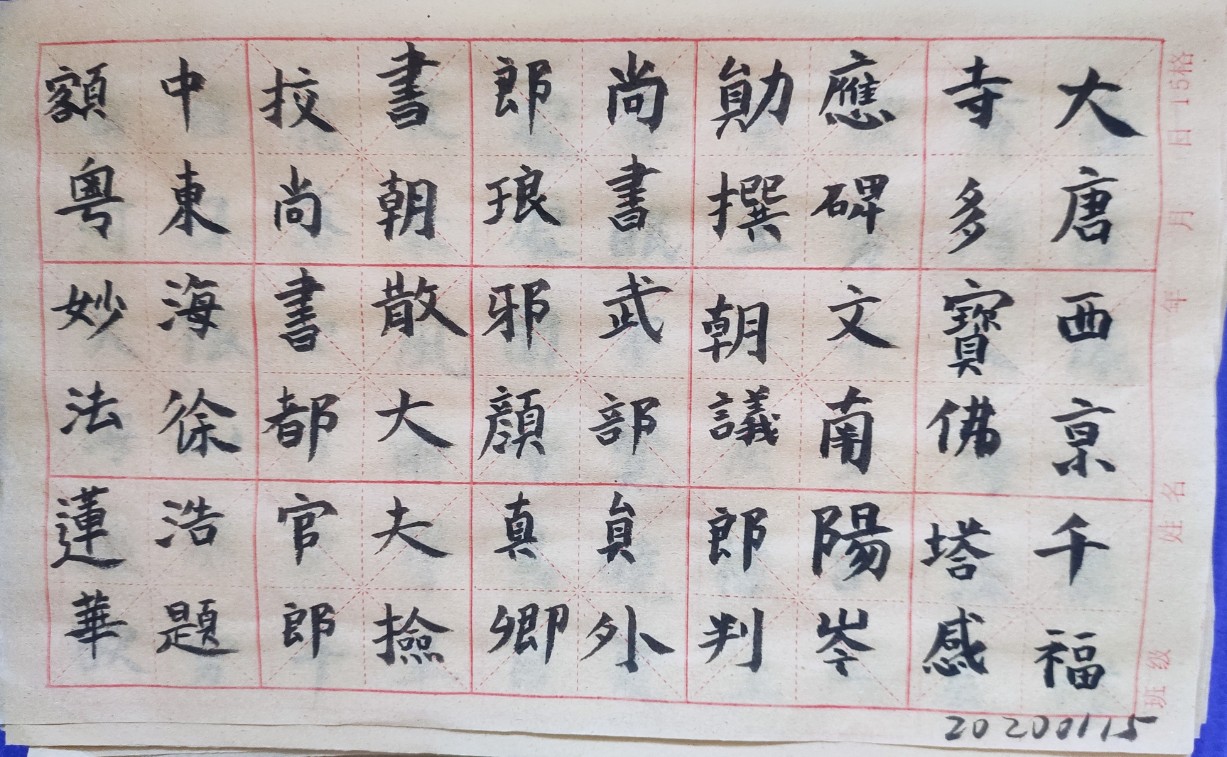 大唐西京千福
寺多寶佛塔感
應碑文南陽岑
勛撰朝議郎判
尚書武部員外
郎琅邪顏真卿
書朝散大夫撿
挍尚書都官郎
中東海徐浩題
額粵妙法蓮華
15格
日
月
年
姓名
班级
20200115